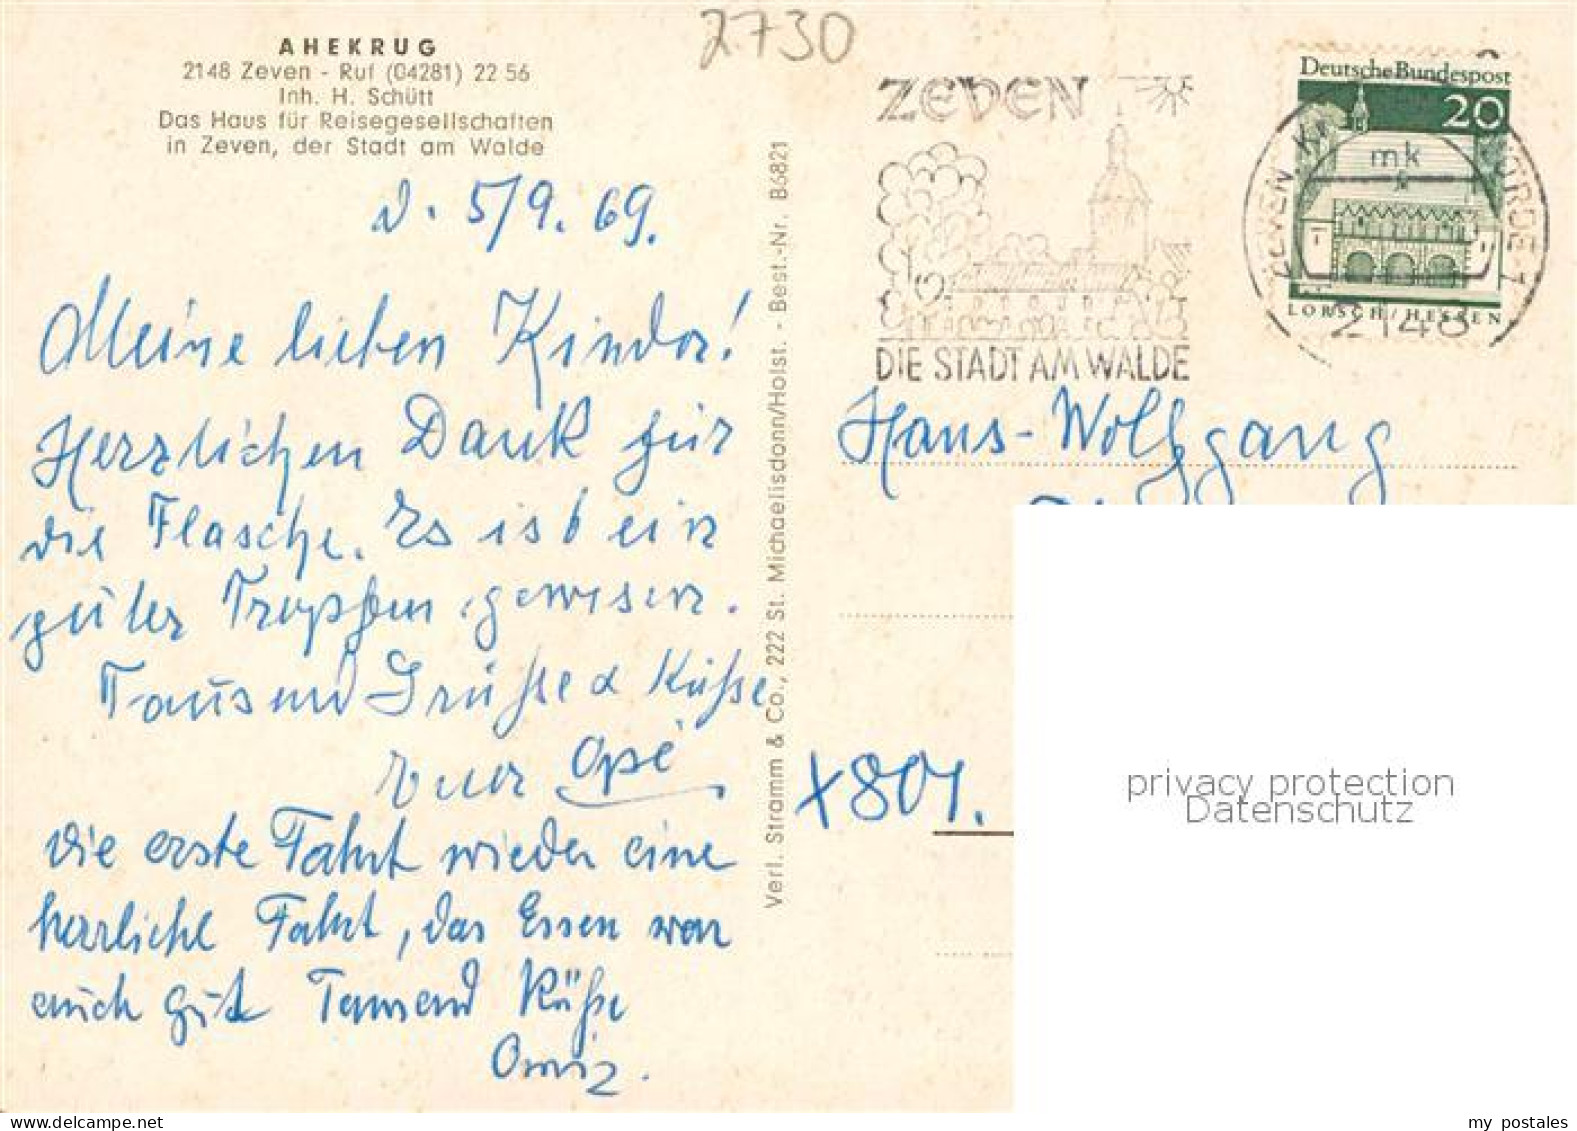 AHEKRUG
2148 Zeven - Ruf (04281) 22 56
Inh. H. Schütt
Das Haus für Reisegesellschaften
in Zeven, der Stadt am Walde
d. 5/9. 69.
Meine lieben Kinder!
Herzlichen Dank für
die Flasche. Es ist ein
guter Tropfen gewesen.
Tausend Grüße & Küsse
Euer Opi
Die erste Fahrt wieder eine
herrliche Fahrt, das Essen war
auch gut Tausend Küße
Omi
Verl. Stramm & Co., 222 St. Michaelisdonn/Holst. - Best.-Nr. B6821
2730
ZEVEN
DIE STADT AM WALDE
Deutsche Bundespost
20
mk
LORSCH/HESSEN
2148
Hans-Wolfgang
x 801.
privacy protection
Datenschutz
my postales
www.delcampe.net